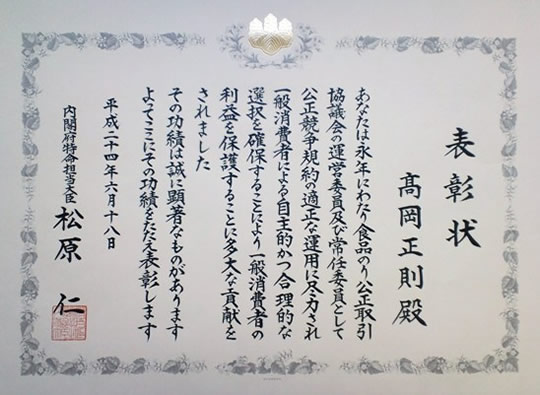 表彰状
髙岡正則殿
あなたは永年にわたり食品のり公正取引
協議会の運営委員及び常任委員として
公正競争規約の適正な運用に尽力され
一般消費者による自主的かつ合理的な
選択を確保することにより一般消費者の
利益を保護することに多大な貢献を
されました
その功績は誠に顕著なものがあります
よってここにその功績をたたえ表彰します
平成二十四年六月十八日
内閣府特命担当大臣 松原 仁